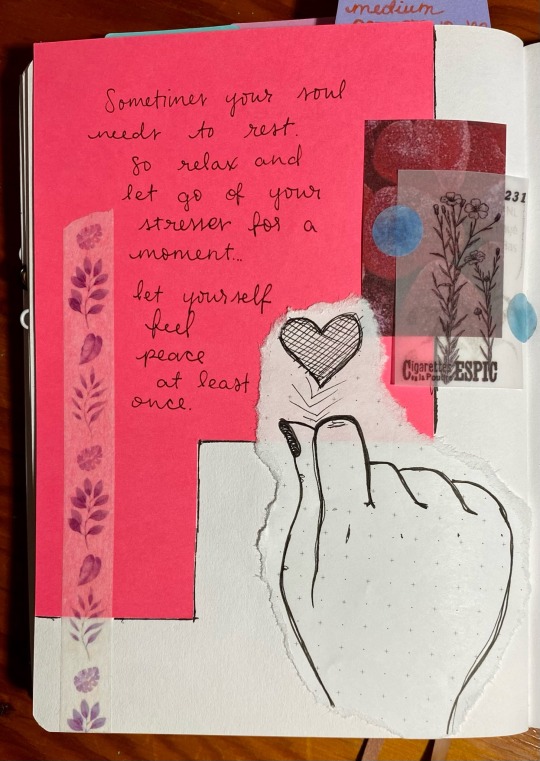 medium
Sometimes your soul
needs to rest.
So relax and
let go of your
stresses for a
moment...
let yourself
feel
peace
at least
once.
231
Cigarettes
de la
ESPIC